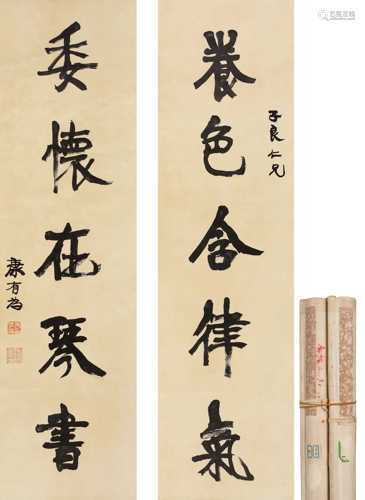 養色含律氣
子良仁兄
委懷在琴書
康有為